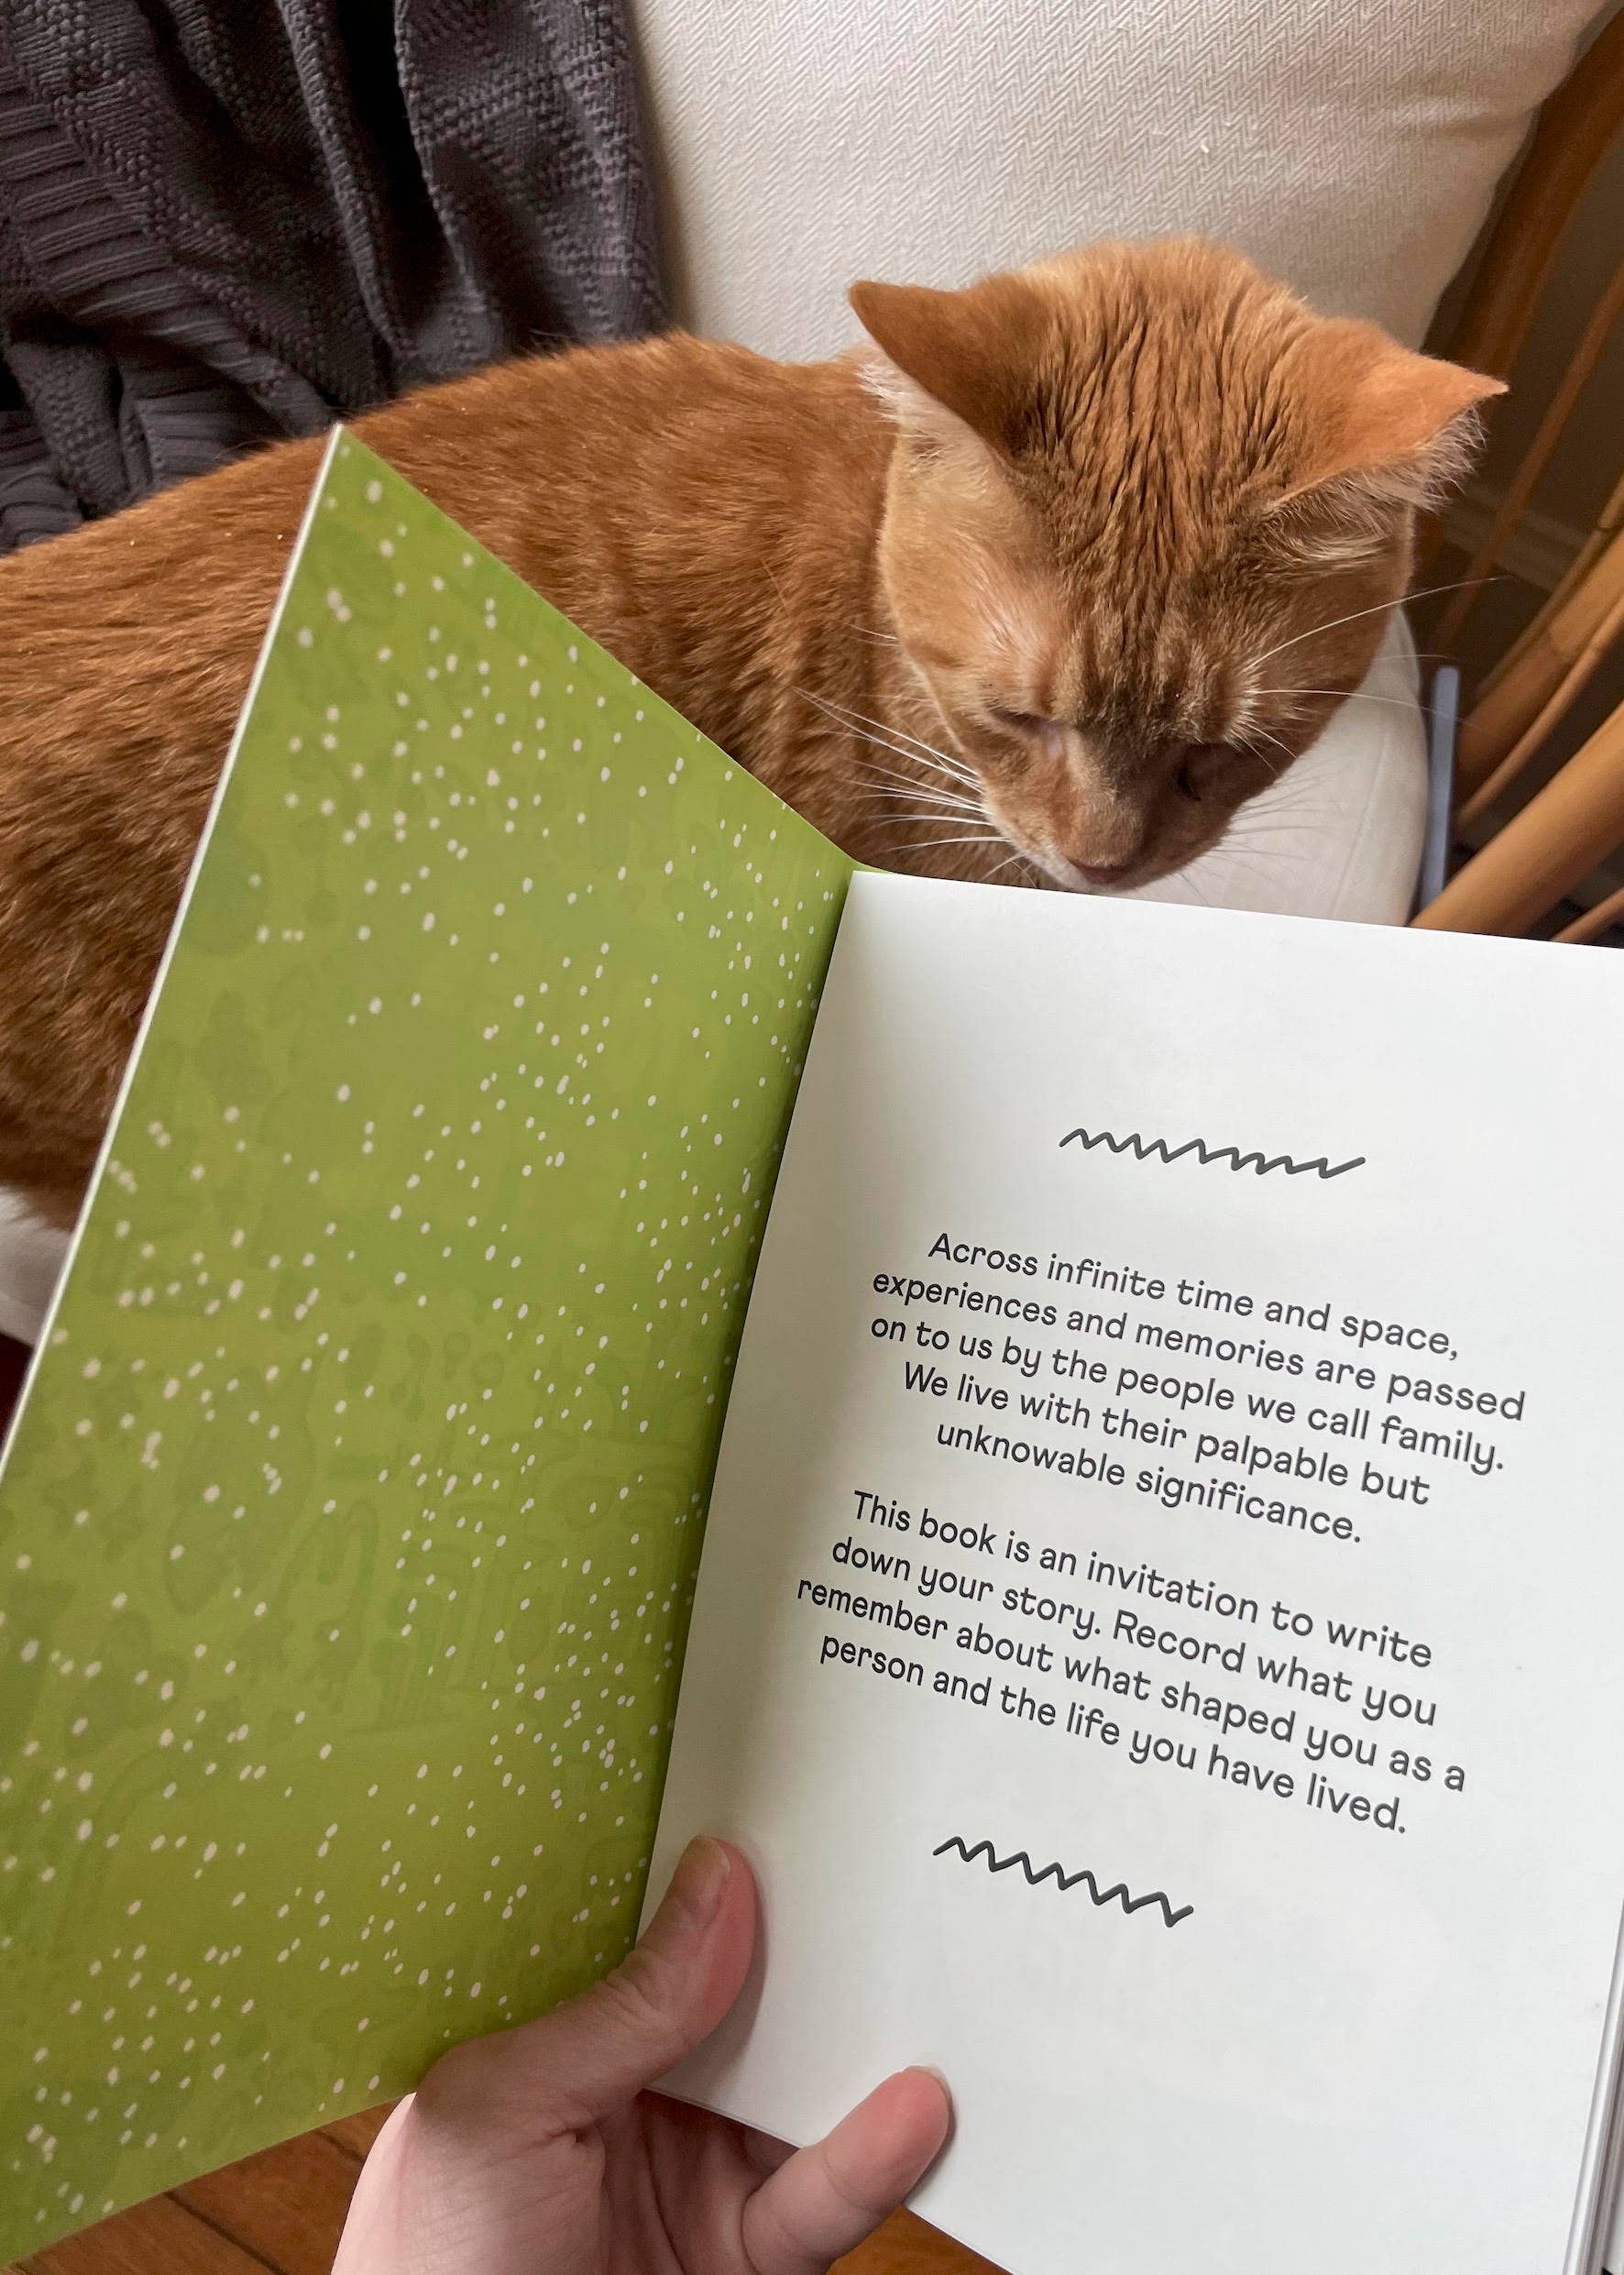 Across infinite time and space,
experiences and memories are passed
on to us by the people we call family.
We live with their palpable but
unknowable significance.
This book is an invitation to write
down your story. Record what you
remember about what shaped you as a
person and the life you have lived.